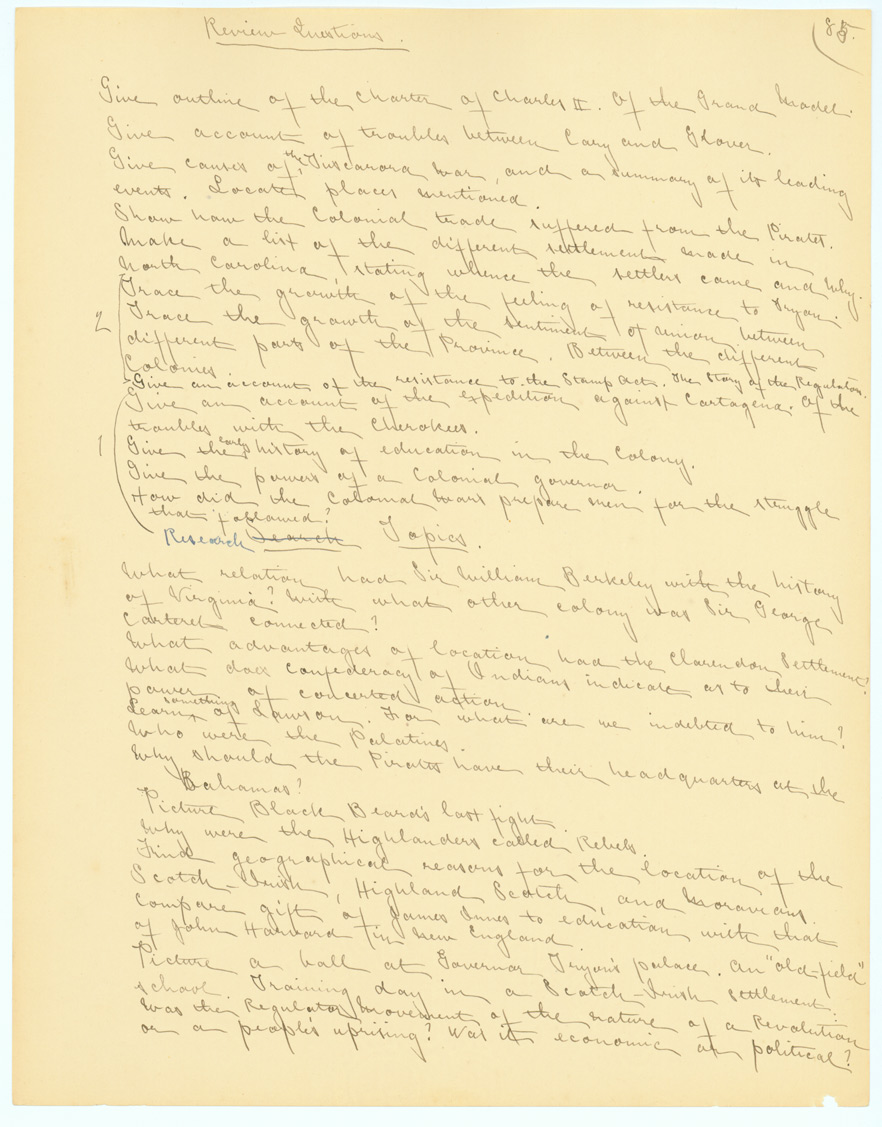 Review Questions.
85.
Give outline of the Charter of Charles II. Of the Grand Model.
Give account of troubles between Cary and Glover.
Give causes of the Tuscarora War, and a summary of its leading
events. Locate places mentioned.
Show how the Colonial trade suffered from the Pirates.
Make a list of the different settlements made in
North Carolina, stating whence the settlers came and why.
Trace the growth of the feeling of resistance to Tryon.
2
Trace the growth of the sentiment of union between
different parts of the Province. Between the different
Colonies.
Give an account of the resistance to the Stamp Act. The Story of the Regulators.
Give an account of the expedition against Cartagena. Of the
troubles with the Cherokees.
1
Give the early history of education in the Colony.
Give the powers of a Colonial governor.
How did the Colonial Wars prepare men for the struggle
that followed?
Research Search Topics.
What relation had Sir William Berkeley with the history
of Virginia? With what other colony was Sir George
Carteret connected?
What advantages of location had the Clarendon Settlement?
What does confederacy of Indians indicate as to their
power of concerted action
Learn something of Lawson. For what are we indebted to him?
Who were the Palatines.
Why should the Pirates have their headquarters at the
Bahamas?
Picture Black Beard's last fight.
Why were the Highlanders called Rebels.
Find geographical reasons for the location of the
Scotch-Irish, Highland Scotch, and Moravians.
Compare gift of James Innes to education with that
of John Harvard in New England.
Picture a ball at Governor Tryon's palace. An "old-field"
school. Training day in a Scotch-Irish settlement.
Was the Regulator Movement of the nature of a Revolution
or a people's uprising? Was it economic or political?